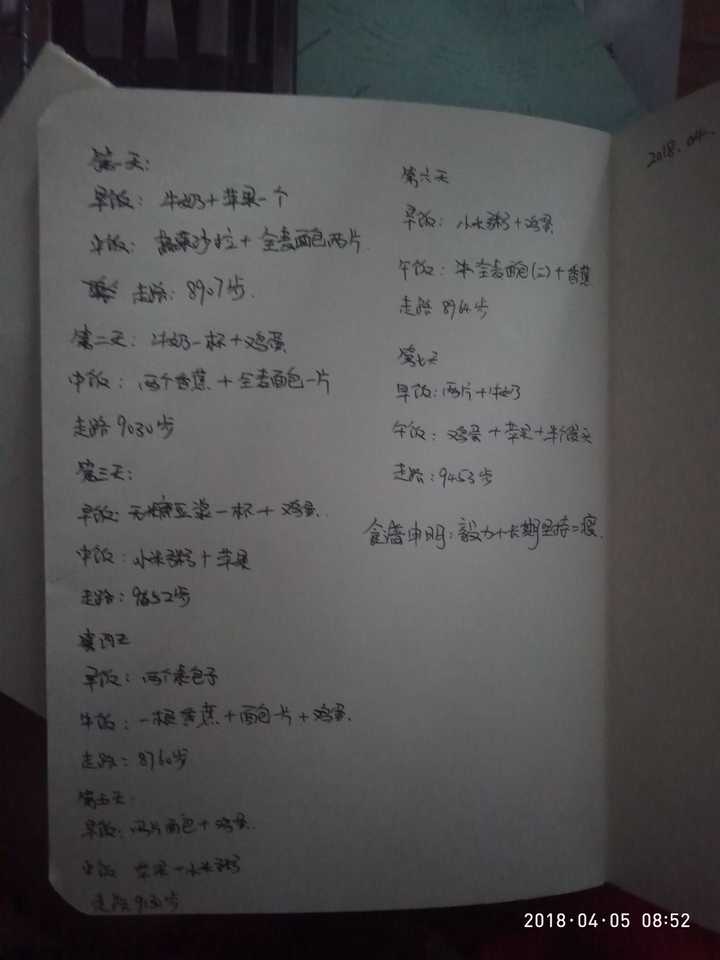 第一天:
早饭: 牛奶+苹果一个
午饭: 蔬菜沙拉+全麦面包两片
走路: 8907步.
第二天: 牛奶一杯+鸡蛋
中饭: 两个香蕉+全麦面包一片
走路 9030步
第三天:
早饭: 无糖豆浆一杯+鸡蛋.
中饭: 小米粥+苹果
走路: 9652步
第四天
早饭: 两个素包子
午饭: 一根香蕉+面包片+鸡蛋.
走路: 8760步
第五天
早饭: 两片面包+鸡蛋.
中饭 苹果一小米粥
走路 9030步
第六天
早饭: 小米粥+鸡蛋
午饭: 全麦面包(二)+香蕉
走路 8964步
第七天
早饭: 两片+牛奶
午饭: 鸡蛋+苹果+半个馒头
走路: 9453步
食谱申明: 毅力+长期坚持=瘦.
2018.04.
2018·04·05 08:52